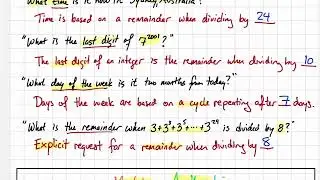 "What time is it now in Sydney Australia?"
Time is based on a remainder when dividing by 24
"What is the last digit of 7²⁰⁰¹?"
The last digit of an integer is the remainder when dividing by 10
"What day of the week is it two months from today?"
Days of the week are based on a cycle repeating after 7 days.
"What is the remainder when 3+3³+3⁵+⋯+3²⁹ is divided by 8?"
Explicit request for a remainder when dividing by 8